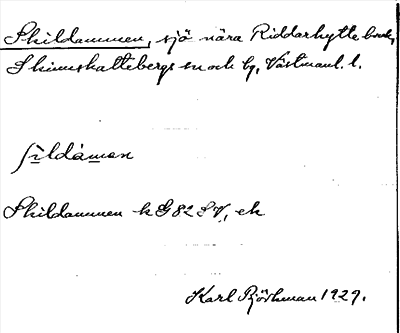 Skildammen, sjö nära Riddarhytte bruk,
Skinnskattebergs sn och bg, Västmanl. l.
Skildammen k G 82 SV, ek
Karl Björkman 1929.